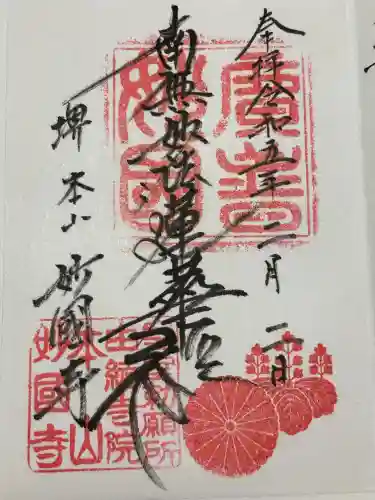 奉拝 令和五年二月二日
南無妙法蓮華経
堺 本山 妙國寺
廣普
妙國
勅願所
由緒寺院
本山
妙國寺